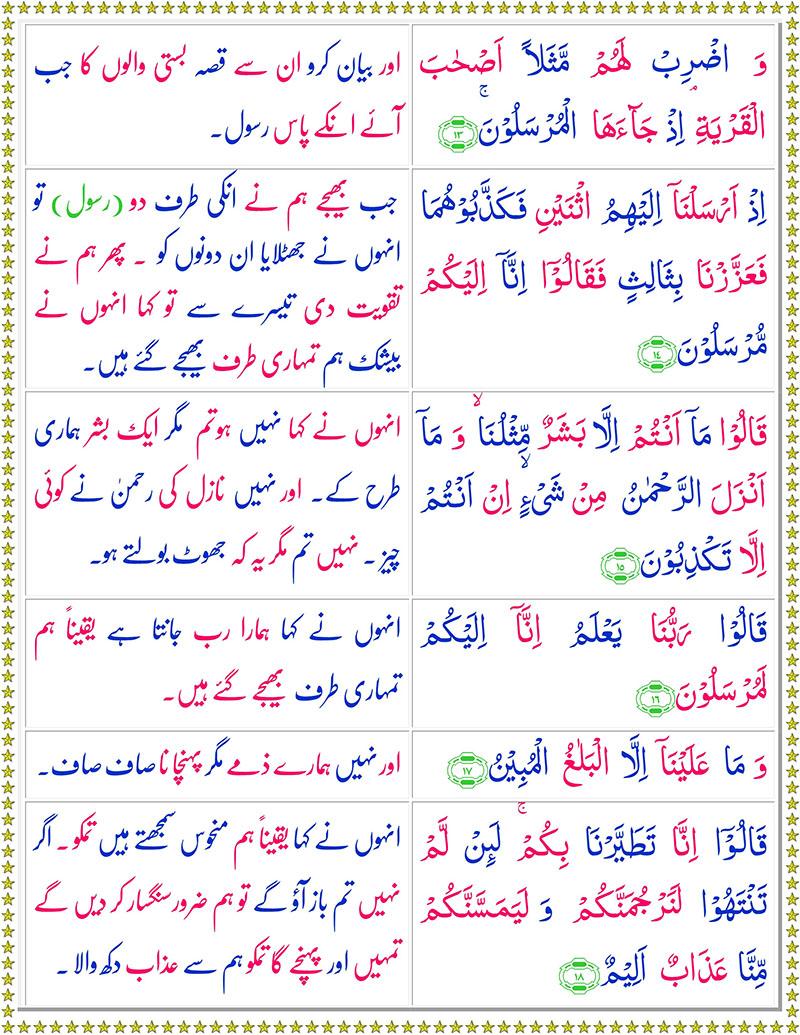 وَ اضْرِبْ لَهُمْ مَّثَلًا اَصْحٰبَ
الْقَرْيَةِ ۘ اِذْ جَآءَهَا الْمُرْسَلُوْنَ ۚ ١٣
اور بیان کرو ان سے قصہ بستی والوں کا جب
آئے انکے پاس رسول۔
اِذْ اَرْسَلْنَاۤ اِلَيْهِمُ اثْنَيْنِ فَكَذَّبُوْهُمَا
فَعَزَّزْنَا بِثَالِثٍ فَقَالُوْۤا اِنَّاۤ اِلَيْكُمْ
مُّرْسَلُوْنَ ١٤
جب بھیجے ہم نے انکی طرف دو (رسول) تو
انہوں نے جھٹلایا ان دونوں کو ۔ پھر ہم نے
تقویت دی تیسرے سے تو کہا انہوں نے
بیشک ہم تمہاری طرف بھیجے گئے ہیں۔
قَالُوْا مَاۤ اَنْتُمْ اِلَّا بَشَرٌ مِّثْلُنَا ۙ وَ مَاۤ
اَنْزَلَ الرَّحْمٰنُ مِنْ شَيْءٍ ۙ اِنْ اَنْتُمْ
اِلَّا تَكْذِبُوْنَ ١٥
انہوں نے کہا نہیں ہوتم مگر ایک بشر ہماری
طرح کے۔ اور نہیں نازل کی رحمٰن نے کوئی
چیز ۔ نہیں تم مگر یہ کہ جھوٹ بولتے ہو۔
قَالُوْا رَبُّنَا يَعْلَمُ اِنَّاۤ اِلَيْكُمْ
لَمُرْسَلُوْنَ ١٦
انہوں نے کہا ہمارا رب جانتا ہے یقیناً ہم
تمہاری طرف بھیجے گئے ہیں۔
وَ مَا عَلَيْنَاۤ اِلَّا الْبَلٰغُ الْمُبِيْنُ ١٧
اور نہیں ہمارے ذمے مگر پہنچانا صاف صاف۔
قَالُوْۤا اِنَّا تَطَيَّرْنَا بِكُمْ ۚ لَئِنْ لَّمْ
تَنْتَهُوْا لَنَرْجُمَنَّكُمْ وَ لَيَمَسَّنَّكُمْ
مِّنَّا عَذَابٌ اَلِيْمٌ ١٨
انہوں نے کہا یقیناً ہم منحوس سمجھتے ہیں تمکو۔ اگر
نہیں تم باز آؤ گے تو ہم ضرور سنگسار کر دیں گے
تمہیں اور پہنچے گا تمکو ہم سے عذاب دکھ والا ۔